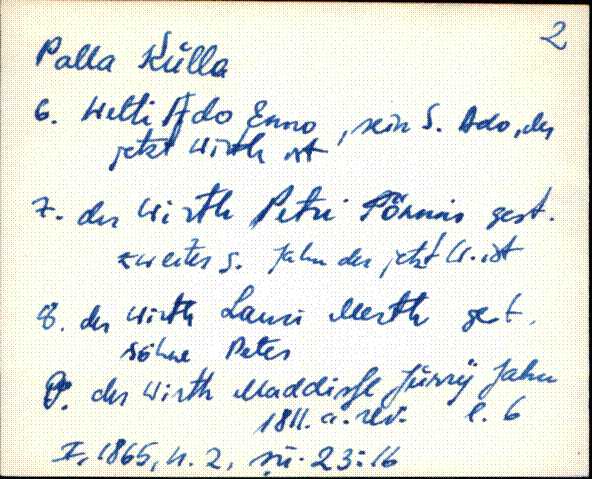 2
Palla Külla
6. Welti Ado Enno, sein S. Ado, der
jetzt Wirth ist
7. der Wirth Petri Tönnis gest.
zweiter S. Jahn der jetzt W. ist
8. der Wirth Lauri Merth gest.
söhne Peter
9. der Wirth Jürry Jahn
1811. a. rev. l. 6
I, 1865, n. 2, sü. 23:16